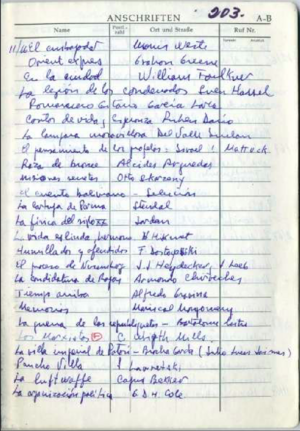 ANSCHRIFTEN 203. A-B
Name Ort und Straße Ruf Nr.
El embajador Morris West
Orient expres Graham Greene
En la ciudad William Faulkner
La legión de los condenados Sven Hassel
Romancero Gitano García Lorca
Cantos de vida y esperanza Rubén Darío
La lámpara maravillosa Del Valle Inclan
El pensamiento de los profetas - Israel Mattuck
Raza de bronce Alcides Arguedas
El cuento boliviano - Selección
La cartuja de Parma Stendal
La física del siglo XX Jordan
La vida es linda, hermano N Hikmet
Humillados y ofendidos F Dostoyevski
El proceso de Nuremberg J J Heydecker, J Leeb
La candidatura de Rojas Armando Chirveches
Tiempo arriba Alfredo
Memorias Mariscal Montgomery
La guerra de las republiquetas - Bartolomé Mitre
Los Marxistas C. Wright Mills
La villa imperial de Potosí - Brocha Gorda (Julio Lucas Jaimes)
Pancho Villa I Lavretski
La Luftwaffe Cajus Bekker
La organización política G D H Cole